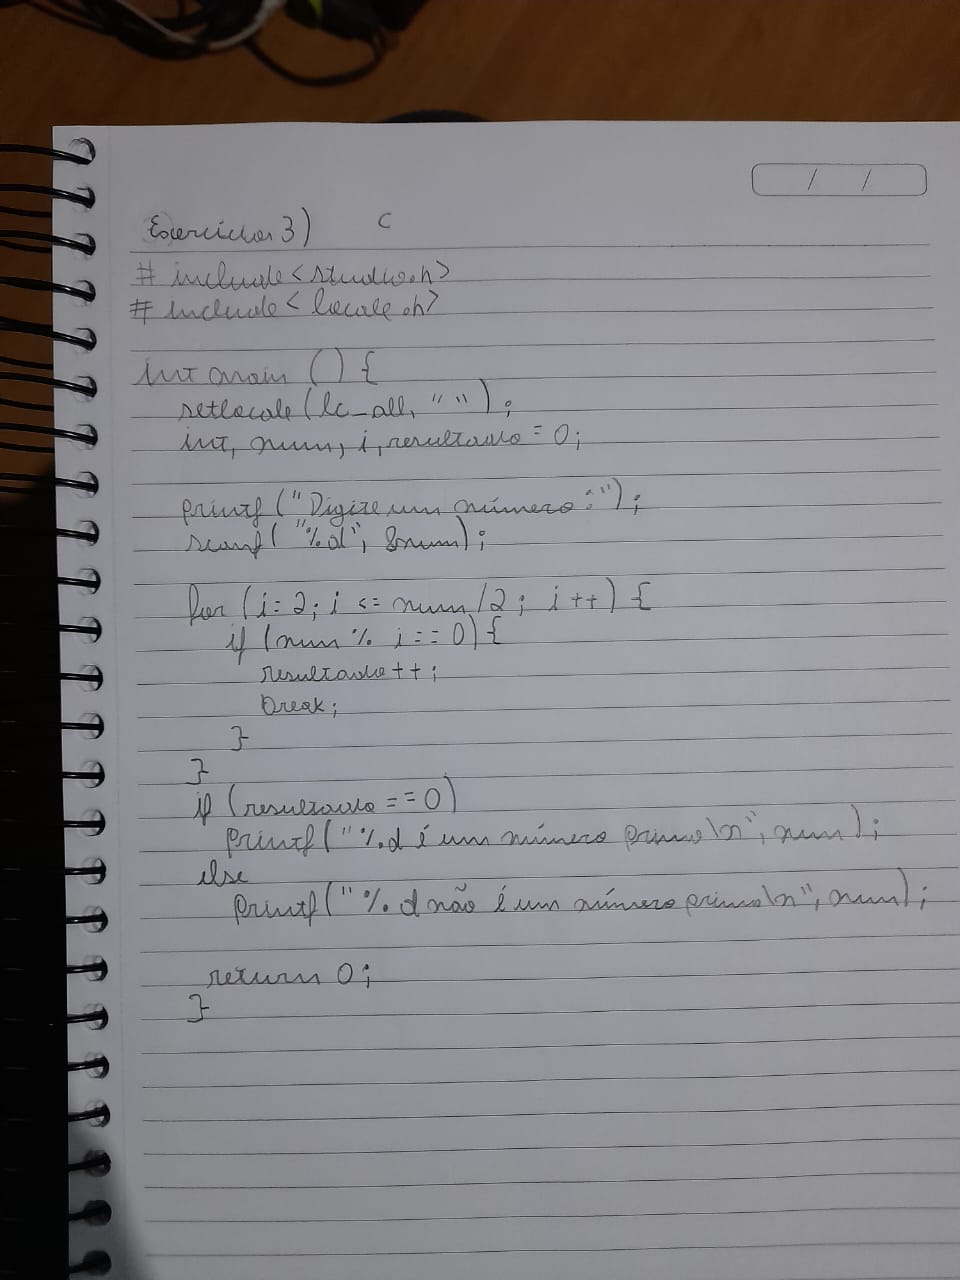 / /
Exercicios 3) C
# include <studio.h>
# include <locale.h>
int main () {
setlocale (lc_all, " ");
int, num, i, resultado = 0;
printf ("Digite um número:");
scanf ("%d", &num);
for (i = 2; i <= num /2; i ++) {
if (num % i == 0) {
resultado ++;
break;
}
}
if (resultado == 0)
printf ("%d é um número primo\n", num);
else
printf ("%d não é um número primo\n", num);
return 0;
}